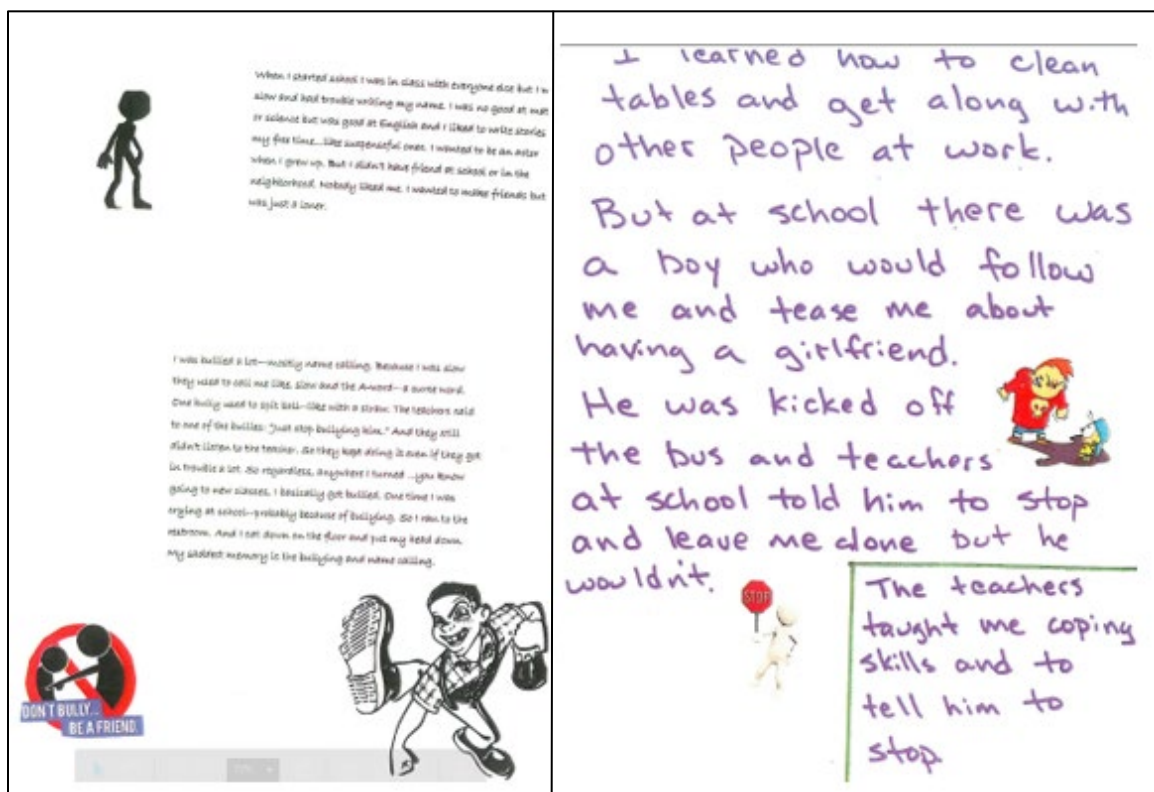 When I started school I was in class with everyone else but I'm
slow and had trouble writing my name. I was no good at mat
or science but was good at English and I liked to write stories
my free time...like suspenseful ones. I wanted to be an actor
when I grew up. But I didn't have friend at school or in the
neighborhood. Nobody liked me. I wanted to make friends but
was just a loner.
I was bullied a lot—mostly name calling. Because I was slow
they used to call me like, slow and the A-word—a curse word.
One bully used to spit ball—like with a straw. The teachers said
to one of the bullies: "Just stop bullying him." And they still
didn't listen to the teacher. So they kept doing it even if they got
in trouble a lot. So regardless, anywhere I turned ...you know
going to new classes, I basically got bullied. One time I was
crying at school—probably because of bullying. So I ran to the
restroom. And I sat down on the floor and put my head down.
My saddest memory is the bullying and name calling.
DON'T BULLY...
BE A FRIEND.
I learned how to clean
tables and get along with
other people at work.
But at school there was
a boy who would follow
me and tease me about
having a girlfriend.
He was kicked off
the bus and teachers
at school told him to stop
and leave me alone but he
wouldn't.
STOP
The teachers
taught me coping
skills and to
tell him to
stop